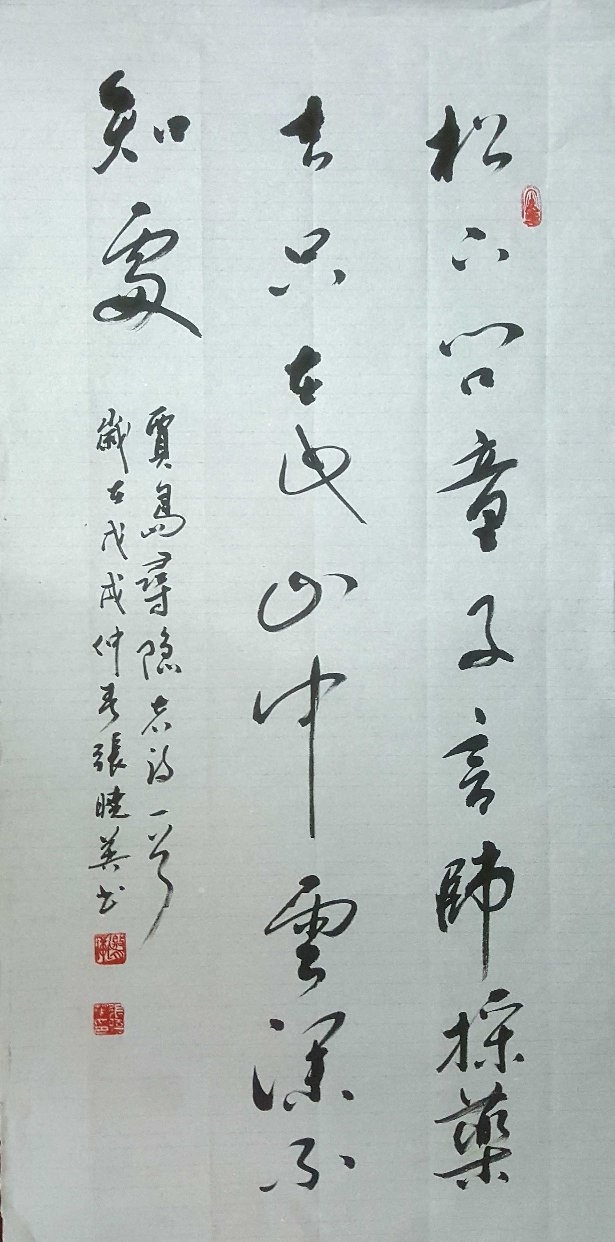 松下问童子言師採藥
去只在此山中雲深不
知處
賈島尋隐者诗一首
歲在戊戌仲春張曉英书